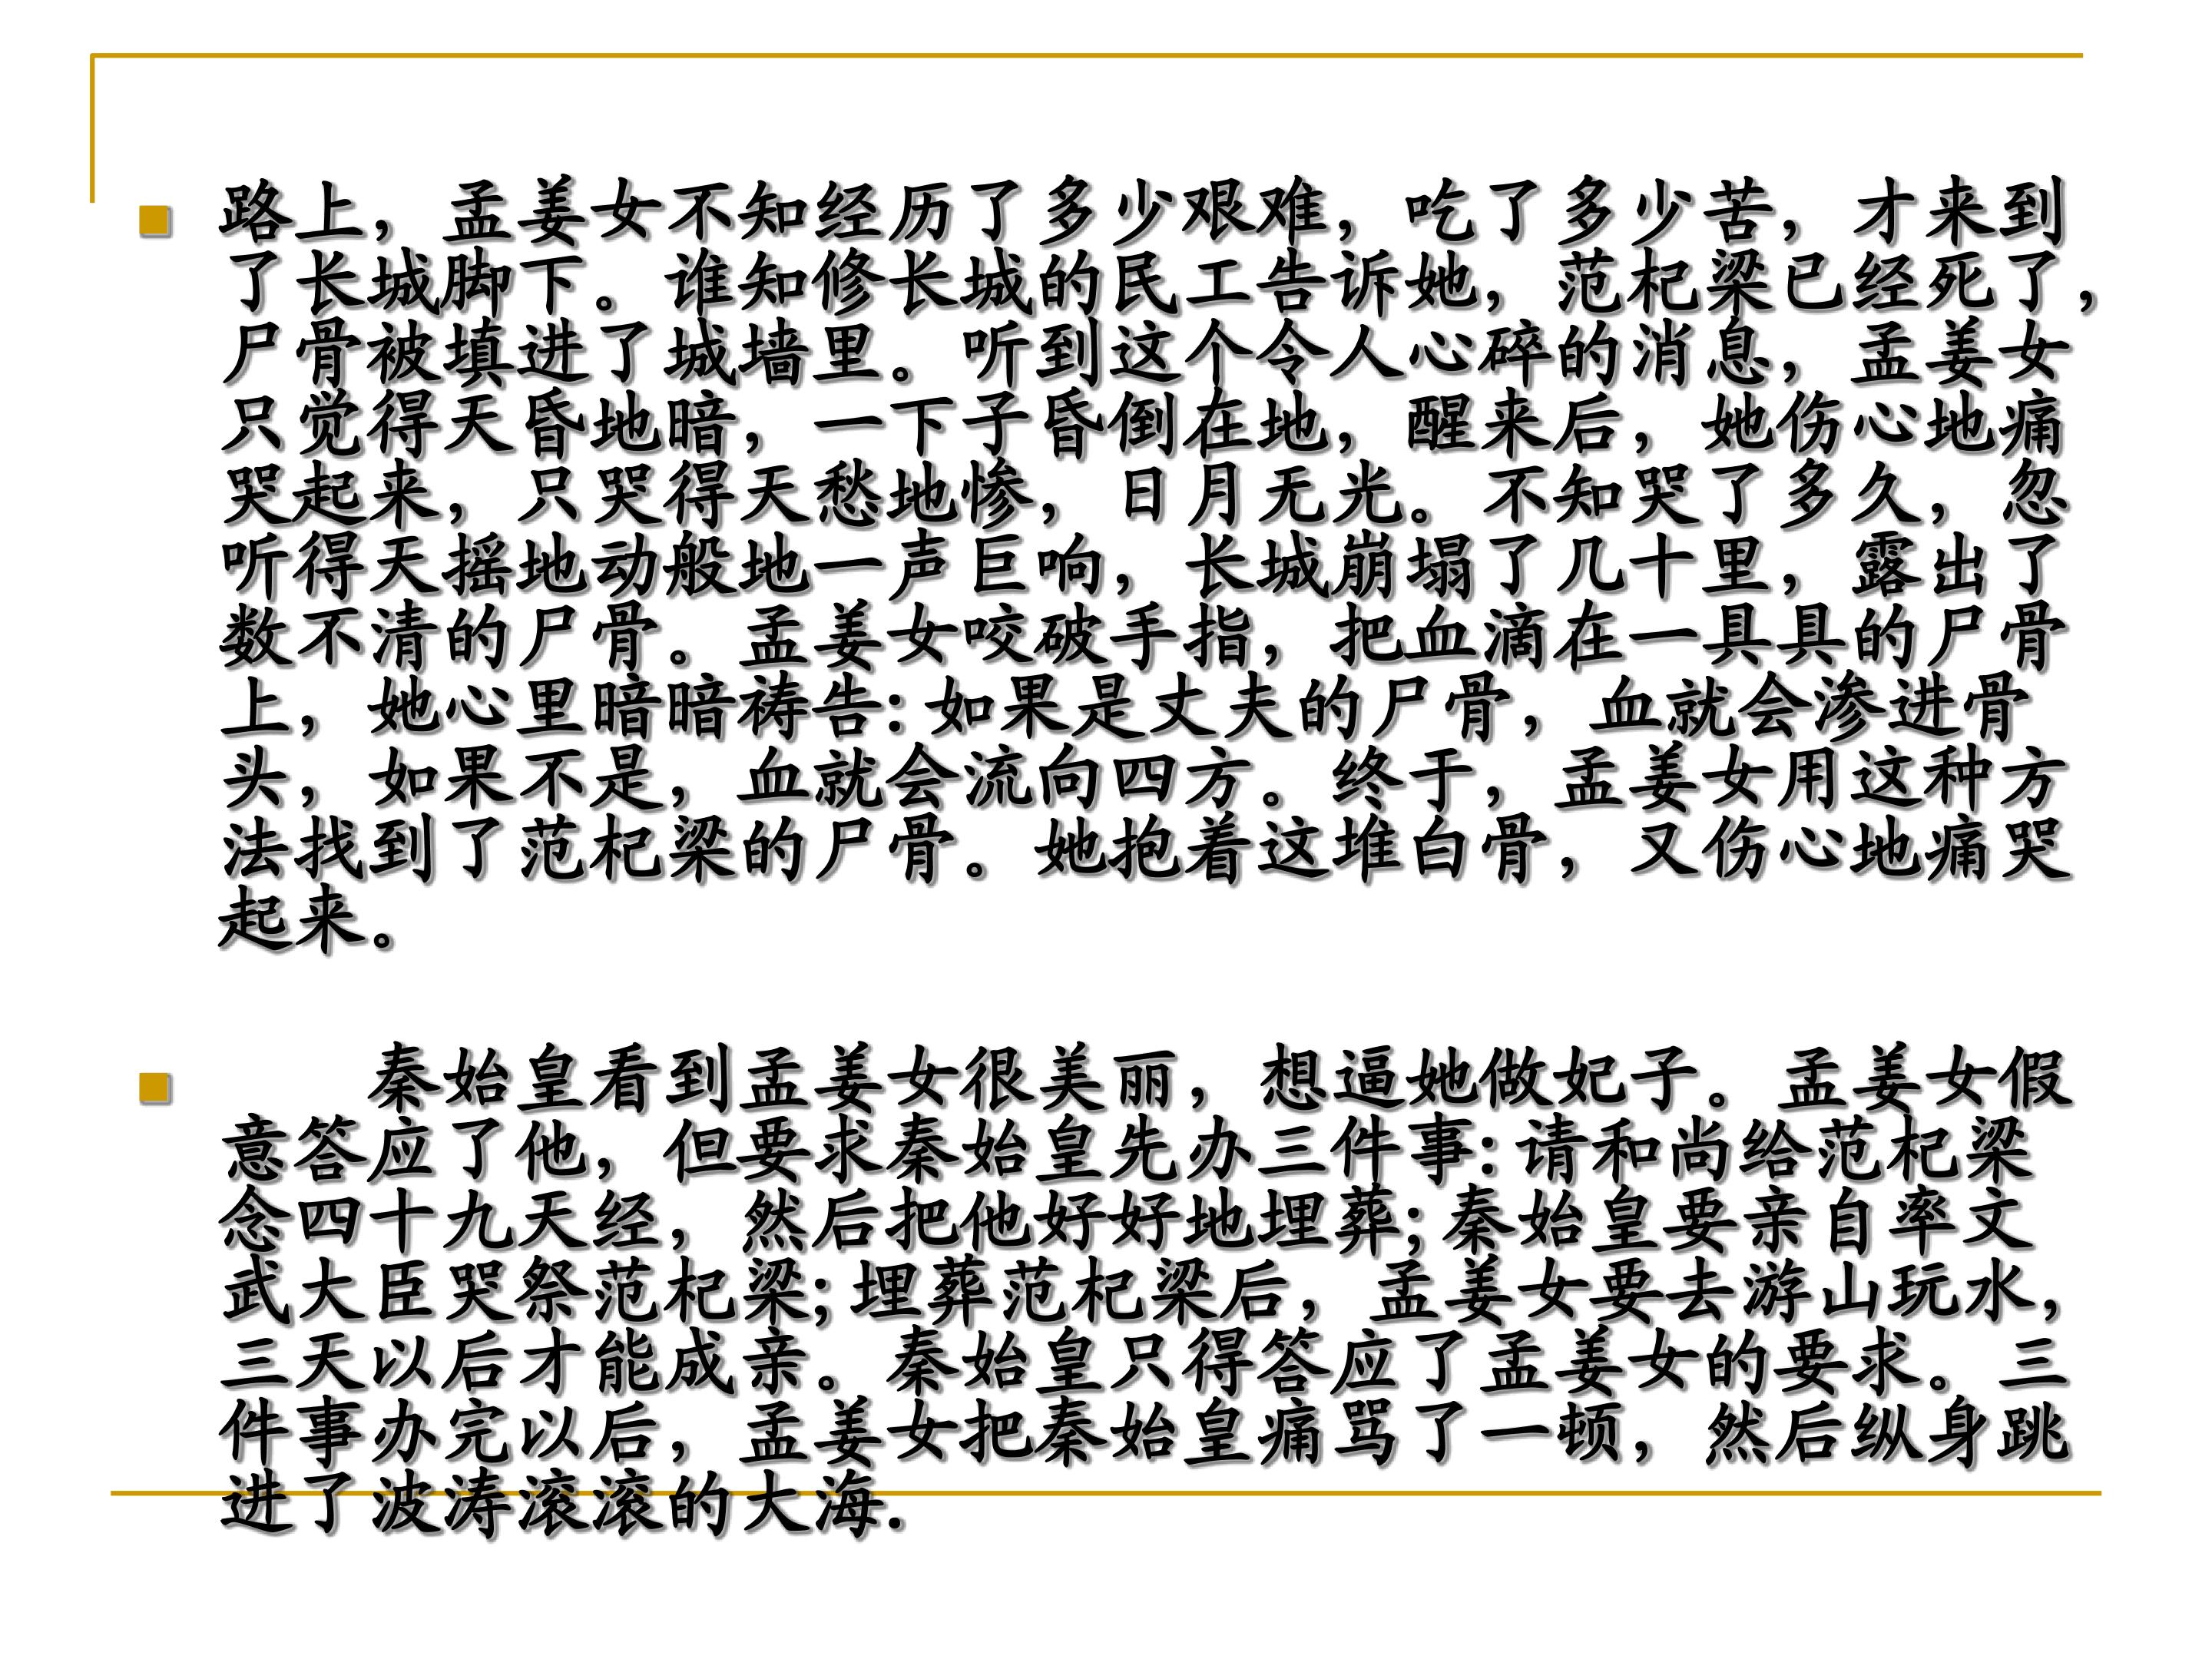 路上，孟姜女不知经历了多少艰难，吃了多少苦，才来到
了长城脚下。谁知修长城的民工告诉她，范杞梁已经死了，
尸骨被填进了城墙里。听到这个令人心碎的消息，孟姜女
只觉得天昏地暗，一下子昏倒在地，醒来后，她伤心地痛
哭起来，只哭得天愁地惨，日月无光。不知哭了多久，忽
听得天摇地动般地一声巨响，长城崩塌了几十里，露出了
数不清的尸骨。孟姜女咬破手指，把血滴在一具具的尸骨
上，她心里暗暗祷告:如果是丈夫的尸骨，血就会渗进骨
头，如果不是，血就会流向四方。终于，孟姜女用这种方
法找到了范杞梁的尸骨。她抱着这堆白骨，又伤心地痛哭
起来。
秦始皇看到孟姜女很美丽，想逼她做妃子。孟姜女假
意答应了他，但要求秦始皇先办三件事:请和尚给范杞梁
念四十九天经，然后把他好好地埋葬;秦始皇要亲自率文
武大臣哭祭范杞梁;埋葬范杞梁后，孟姜女要去游山玩水，
三天以后才能成亲。秦始皇只得答应了孟姜女的要求。三
件事办完以后，孟姜女把秦始皇痛骂了一顿，然后纵身跳
进了波涛滚滚的大海.